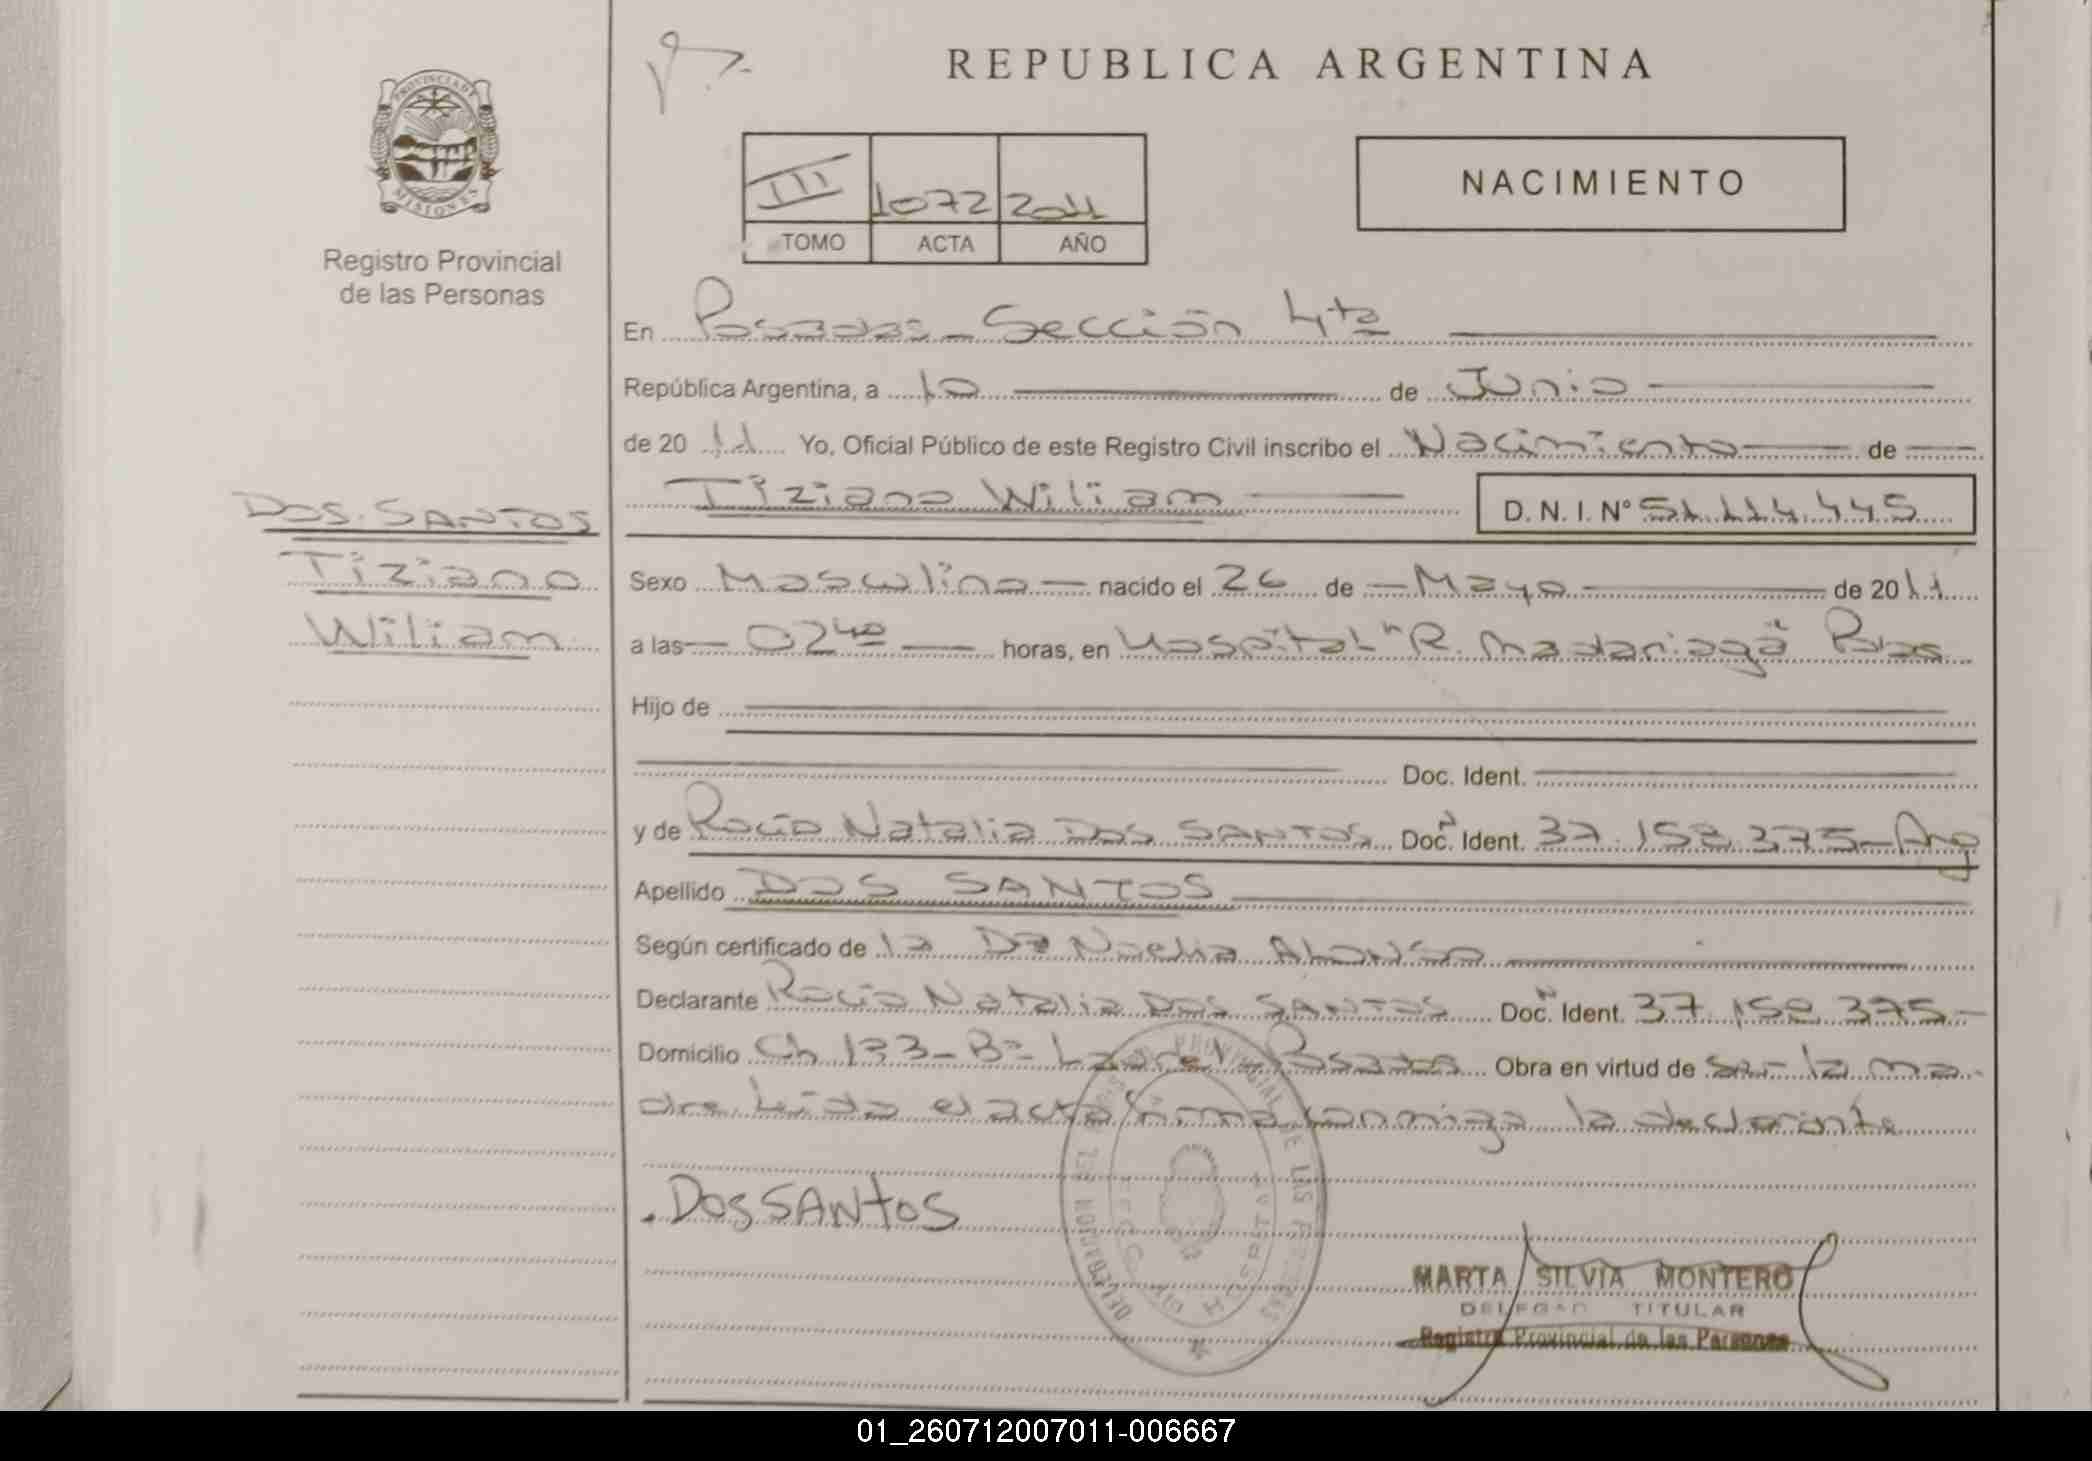 PROVINCIA DE
MISIONES
Registro Provincial
de las Personas
REPUBLICA ARGENTINA
III 1072 2011
TOMO ACTA AÑO
NACIMIENTO
En Posadas - Sección 4ta
República Argentina, a 10 de Junio
de 2011 Yo, Oficial Público de este Registro Civil inscribo el Nacimiento de
Tiziano Wiliam D.N.I. Nº 51.114.445
DOS SANTOS
Tiziano
Wiliam
Sexo Masculino nacido el 26 de Mayo de 2011
a las 02 40 horas, en Hospital "R. Madariaga" Pdas
Hijo de
Doc. Ident.
y de Rocío Natalia DOS SANTOS Doc. N Ident. 37.158.375-Arg
Apellido DOS SANTOS
Según certificado de la Dra Noelia Alonso
Declarante Rocío Natalia DOS SANTOS Doc. N Ident. 37.158.375-
Domicilio Ch 133- Bº Posadas Obra en virtud de ser la ma
dre Leída el acta firma conmigo la declarante
DOS SANTOS
DELEGACION DEL REGISTRO PROVINCIAL DE LAS PERSONAS
MARTA SILVIA MONTERO
DELEGADO TITULAR
Registro Provincial de las Personas
01_260712007011-006667